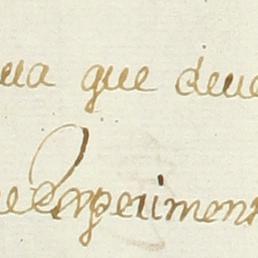 ua que deve
e Experiment